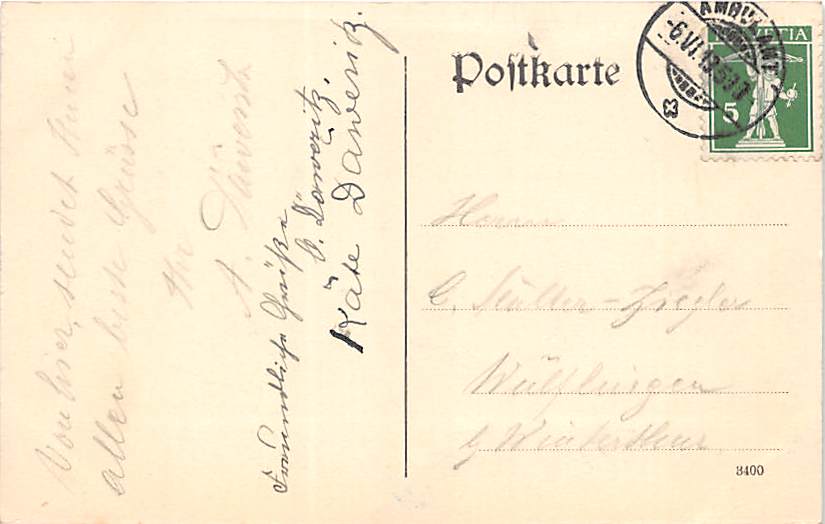 Von hier sendet Ihnen
allen beste Grüsse
Ihr
A. Däweritz
Freundliche Grüße
O. Däweritz.
Käte Däweritz.
Postkarte
AMBULANT
6.VI.13
HELVETIA
5
Herrn
C. Müller-Ziegler
Wülflingen
b/ Winterthur
3400